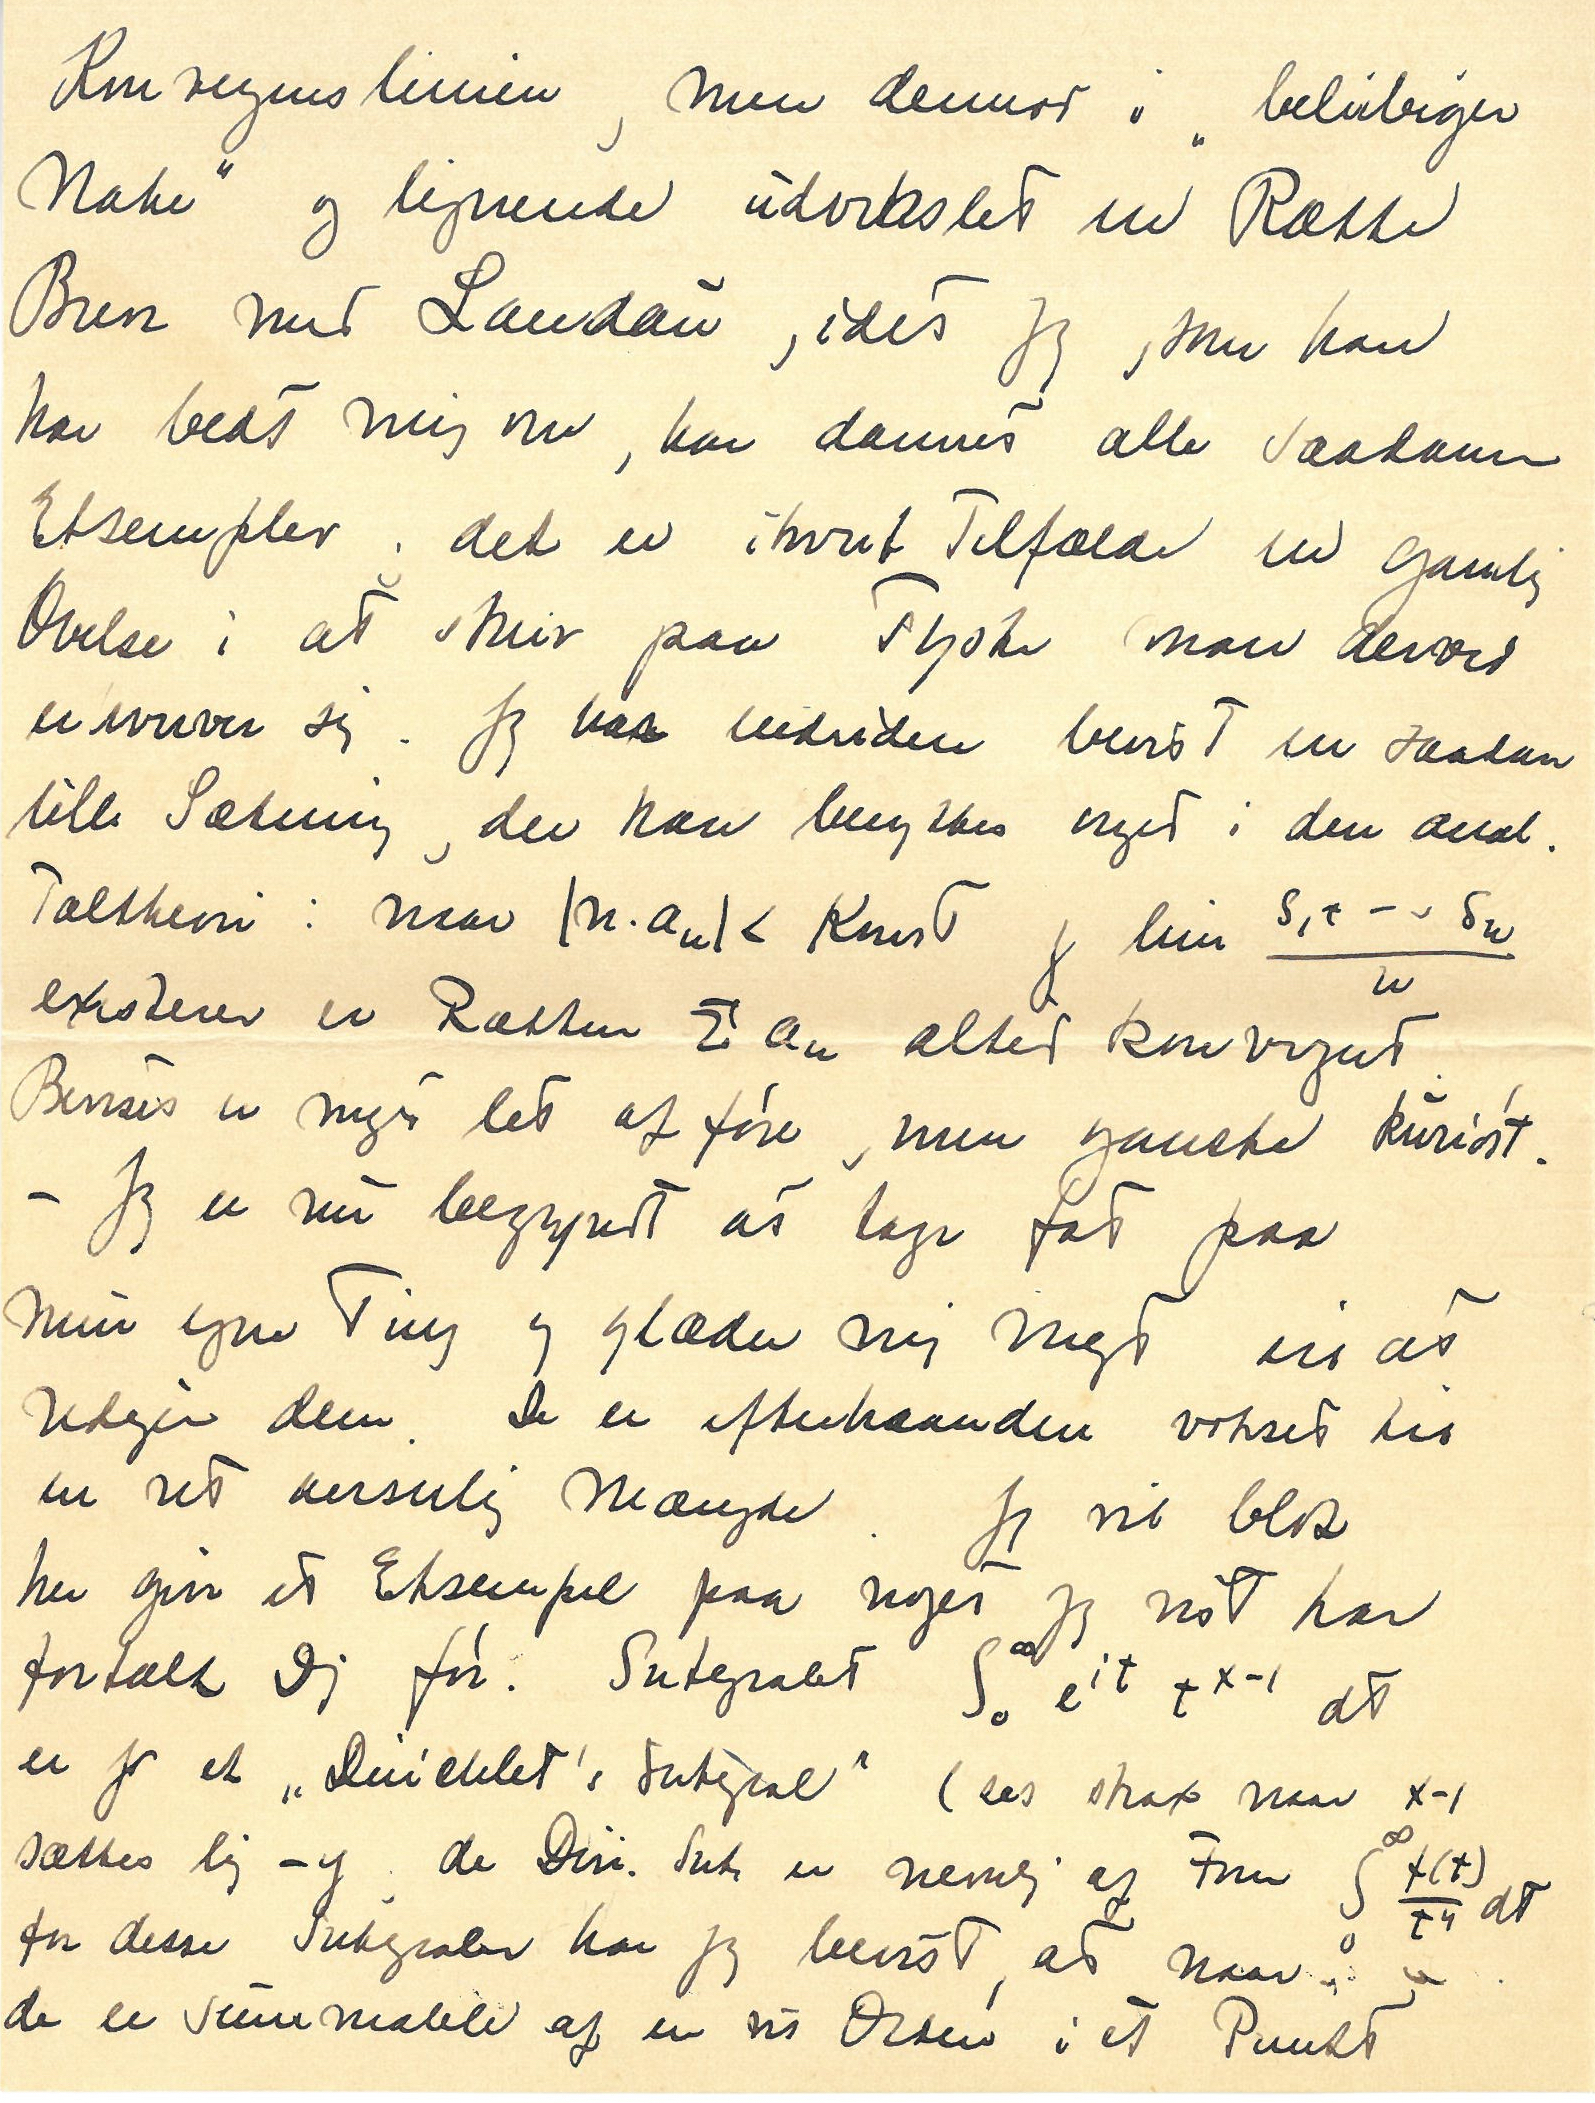 Konvergenslinien, men dennod i „beliebiger
Nähe" og lignende udvekslet en Række
Breve med Landau, idet jeg, som han
har bedt mig om, har dannet alle saadanne
Eksempler, det er ihvert Tilfælde en gavnlig
Øvelse i at skrive paa Tysk man derved
erhverver sig. Jeg har bevist en saadan
lille Sætning, der kan benyttes meget i den anal.
Taltheori: naar |n·aₙ| < Konst og lim (s₁+ -- sₙ)/n
existerer er Rækken Σ aₙ altid konvergent.
Beviset er meget let at føre, men ganske kuriøst.
– Jeg er nu begyndt at tage fat paa
mine egne Ting og glæder mig meget til at
udgive dem. De er efterhaanden vokset til
en ret anselig Mængde. Jeg vil blot
her give et Eksempel paa noget jeg vist har
fortalt Dig før. Integralet ∫₀^∞ e^{it} t^{x-1} dt
er jo et „Dirichlet's Integral" (ses strax naar x-1
sættes lig -y, de Diri. Int. er nemlig af Form ∫₀^∞ f(t)/t^y dt
for disse Integraler har jeg bevist, at naar
de er summable af en vis Orden i et Punkt